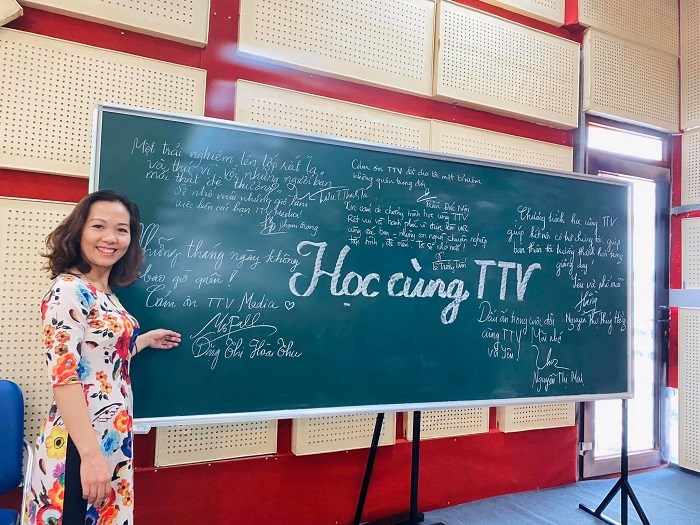 Một trải nghiệm lên lớp rất lạ
và thú vị với những người bạn
mới thật dễ thương
Sẽ nhớ mãi những giờ làm
việc bên các bạn TTV Media!
Phạm Trang
Những tháng ngày không
bao giờ quên!
Cảm ơn TTV Media
Ông Thị Hoài Thu
Cảm ơn TTV đã cho tôi một kỉ niệm
không quên trong đời
Trần Đức Nội
Xin cảm ơn chương trình học cùng TTV
Rất vui và hạnh phúc vì được làm việc
cùng các bạn - những con người chuyên nghiệp
tận tình,
Học cùng TTV
Chương trình học cùng TTV
giúp kết nối cô trò chúng tôi, giúp
bản thân tôi trưởng thành hơn trong
giảng dạy.
Yêu và nhớ mãi
Hằng
Nguyễn Thị Thúy Hằng
Dấu ấn trong cuộc đời
cùng TTV Mãi nhớ
và Yêu!
Nguyễn Thị Mai